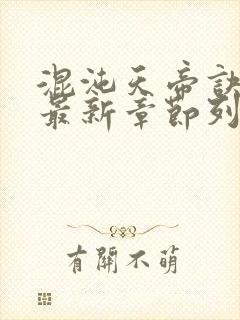 混沌天帝訣
最新章節列
有開不萌